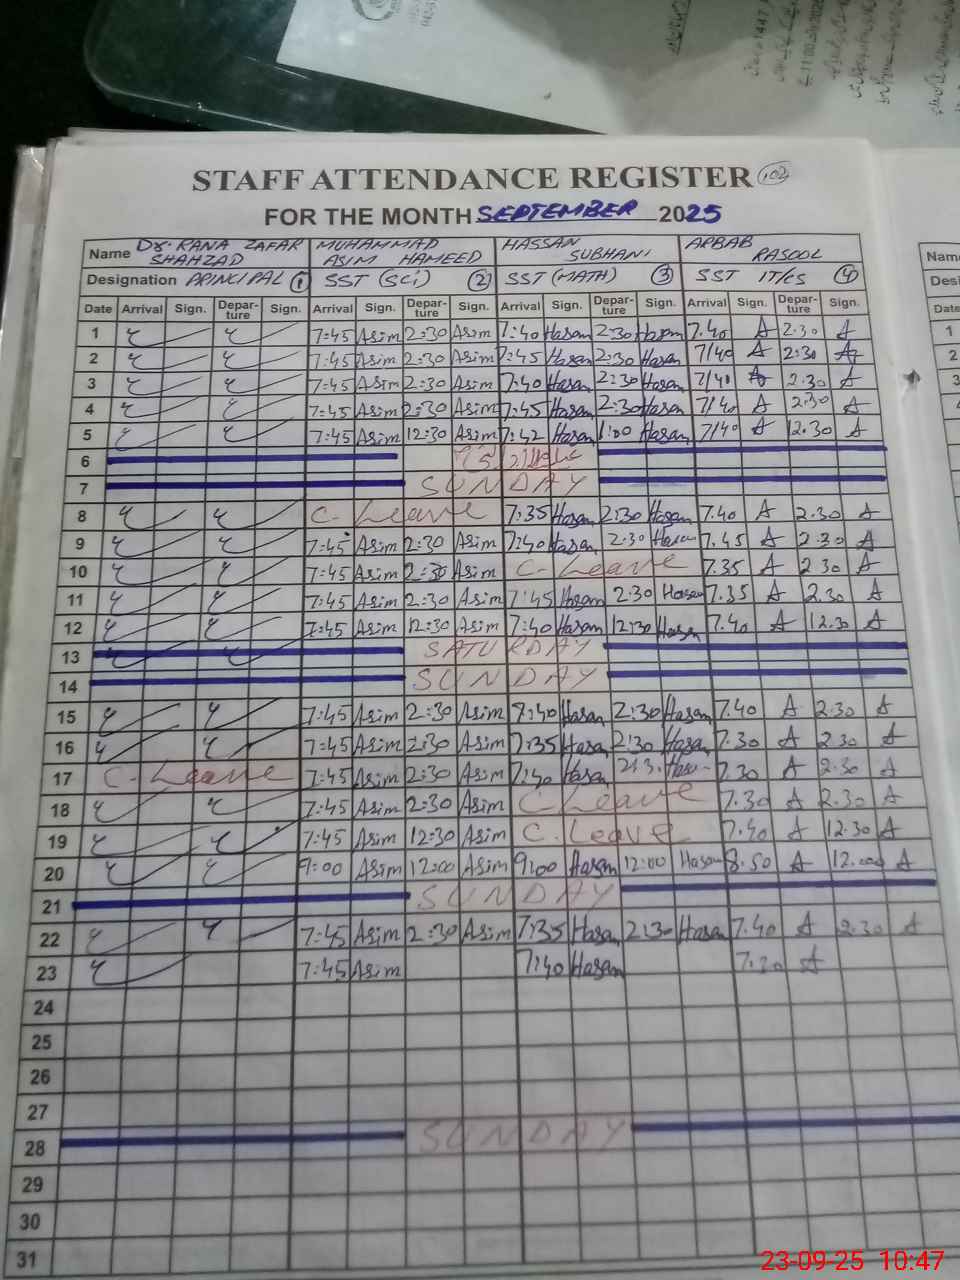 STAFF ATTENDANCE REGISTER 102
FOR THE MONTH SEPTEMBER 2025
Name Dr. RANA ZAFAR SHAHZAD MUHAMMAD ASIM HAMEED HASSAN SUBHANI ARBAB RASOOL
Designation PRINCIPAL 1 SST (Sci) 2 SST (MATH) 3 SST IT/CS 4
Date Arrival Sign. Depar-ture Sign. Arrival Sign. Depar-ture Sign. Arrival Sign. Depar-ture Sign. Arrival Sign. Depar-ture Sign.
1 7:45 Asim 2:30 Asim 7:40 Hasan 2:30 Hasan 7.40 A 2.30 A
2 7:45 Asim 2:30 Asim 7:45 Hasan 2:30 Hasan 7/40 A 2:30 A
3 7:45 Asim 2:30 Asim 7:40 Hasan 2:30 Hasan 7/40 A 2.30 A
4 7:45 Asim 2:30 Asim 7:45 Hasan 2:30 Hasan 7/40 A 2.30 A
5 7:45 Asim 12:30 Asim 7:42 Hasan 1:00 Hasan 7/40 A 12.30 A
6
7 SUNDAY
8 C. Leave 7:35 Hasan 2:30 Hasan 7.40 A 2.30 A
9 7:45 Asim 2:30 Asim 7:40 Hasan 2:30 Hasan 7.45 A 2.30 A
10 7:45 Asim 2:30 Asim C. Leave 7.35 A 2 30 A
11 7:45 Asim 2:30 Asim 7:45 Hasan 2:30 Hasan 7.35 A 2.30 A
12 7:45 Asim 12:30 Asim 7:40 Hasan 12:30 Hasan 7.40 A 12.30 A
13 SATURDAY
14 SUNDAY
15 7:45 Asim 2:30 Asim 7:40 Hasan 2:30 Hasan 7.40 A 2.30 A
16 7:45 Asim 2:30 Asim 7:35 Hasan 2:30 Hasan 7.30 A 2.30 A
17 C. Leave 7:45 Asim 2:30 Asim 7:40 Hasan 7.30 A 2.30 A
18 7:45 Asim 2:30 Asim C. Leave 7.30 A 2.30 A
19 7:45 Asim 12:30 Asim C. Leave 7.40 A 12.30 A
20 9:00 Asim 12:00 Asim 9:00 Hasan 12:00 Hasan 8.50 A 12.00 A
21 SUNDAY
22 7:45 Asim 2:30 Asim 7:35 Hasan 2:30 Hasan 7.40 A 2.30 A
23 7:45 Asim 7:40 Hasan 7.30 A
24
25
26
27
28 SUNDAY
29
30
31
Name
Date
1
2
3
23-09-25 10:47